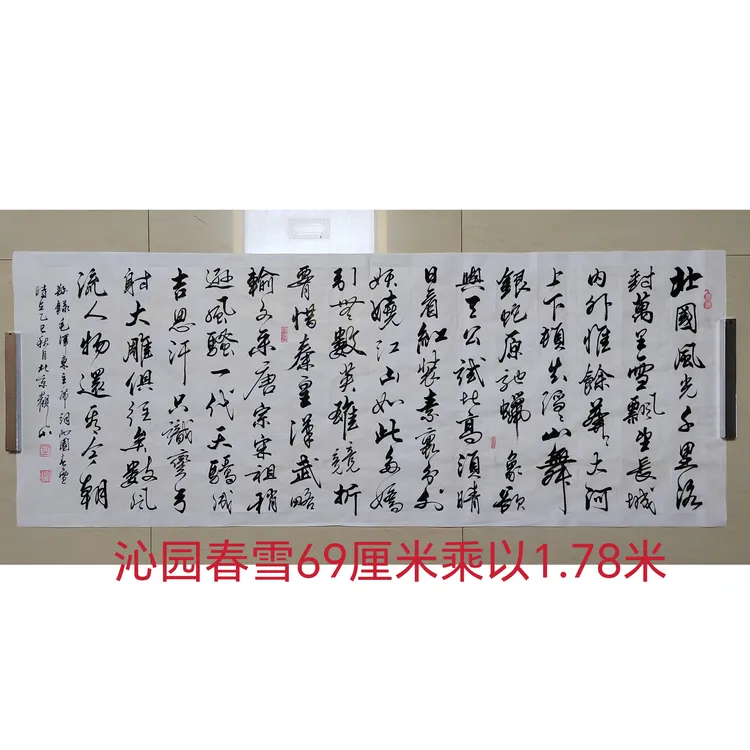 北國風光千里冰
封萬里雪飄望長城
内外惟餘莽莽大河
上下頓失滔滔山舞
銀蛇原馳蠟象欲
與天公試比高須晴
日看紅裝素裹分外
妖嬈江山如此多嬌
引無數英雄競折
腰惜秦皇漢武略
輸文采唐宗宋祖稍
遜風騷一代天驕成
吉思汗只識彎弓
射大雕俱往矣數風
流人物還看今朝
敬錄毛澤東主席詞沁園春雪
時在乙巳秋月北京
沁园春雪69厘米乘以1.78米